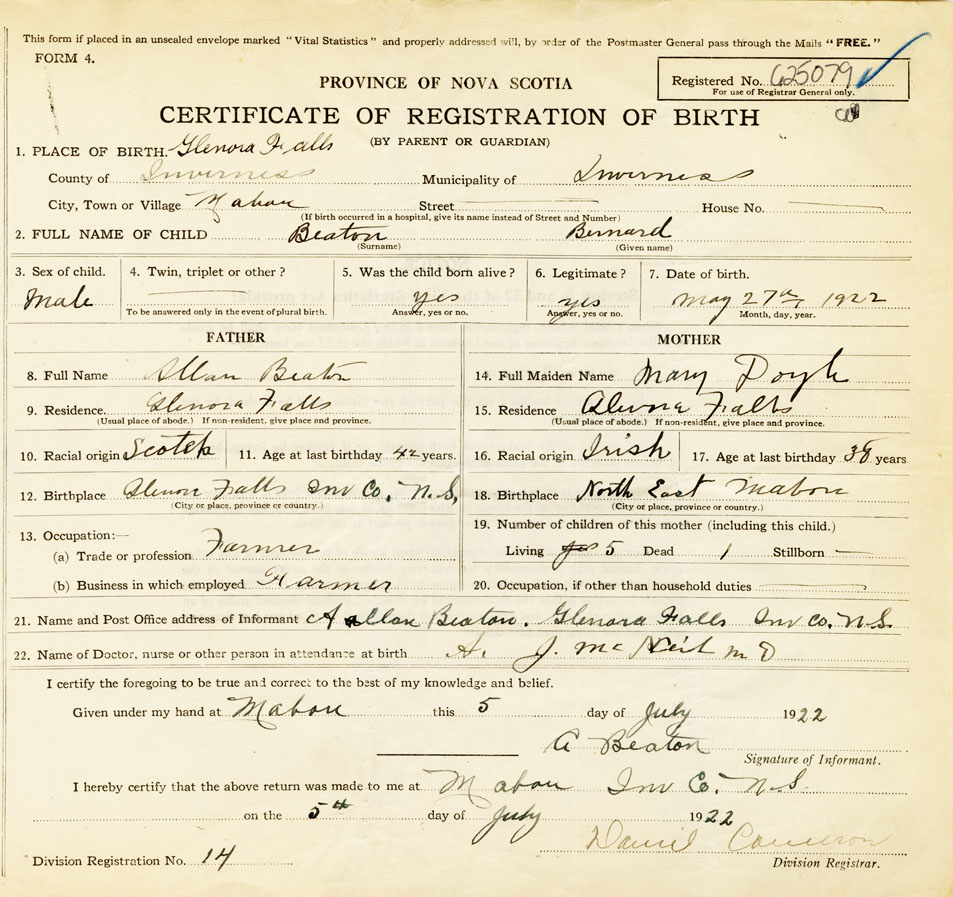 This form if placed in an unsealed envelope marked "Vital Statistics" and properly addressed will, by order of the Postmaster General pass through the Mails "FREE."
FORM 4.
Registered No. 625079
For use of Registrar General only.
PROVINCE OF NOVA SCOTIA
CERTIFICATE OF REGISTRATION OF BIRTH
(BY PARENT OR GUARDIAN)
1. PLACE OF BIRTH. Glenora Falls
County of Inverness Municipality of Inverness
City, Town or Village Mabou Street House No.
(If birth occurred in a hospital, give its name instead of Street and Number)
2. FULL NAME OF CHILD Beaton Bernard
(Surname) (Given name)
3. Sex of child. 4. Twin, triplet or other? 5. Was the child born alive? 6. Legitimate? 7. Date of birth.
Male yes yes May 27th 1922
To be answered only in the event of plural birth. Answer, yes or no. Answer, yes or no. Month, day, year.
FATHER
8. Full Name Allan Beaton
9. Residence. Glenora Falls
(Usual place of abode.) If non-resident, give place and province.
10. Racial origin Scotch 11. Age at last birthday 42 years.
12. Birthplace Glenora Falls Inv Co. N.S.
(City or place, province or country.)
13. Occupation:—
(a) Trade or profession Farmer
(b) Business in which employed Farmer
MOTHER
14. Full Maiden Name Mary Doyle
15. Residence Glenora Falls
(Usual place of abode.) If non-resident, give place and province.
16. Racial origin Irish 17. Age at last birthday 38 years
18. Birthplace North East Mabou
(City or place, province or country.)
19. Number of children of this mother (including this child.)
Living 5 Dead 1 Stillborn —
20. Occupation, if other than household duties
21. Name and Post Office address of Informant Allan Beaton. Glenora Falls Inv Co. N.S.
22. Name of Doctor, nurse or other person in attendance at birth A. J. McNeil M D
I certify the foregoing to be true and correct to the best of my knowledge and belief.
Given under my hand at Mabou this 5 day of July 1922
A Beaton
Signature of Informant.
I hereby certify that the above return was made to me at Mabou Inv Co. N.S.
on the 5th day of July 1922
Daniel Cameron
Division Registration No. 14 Division Registrar.